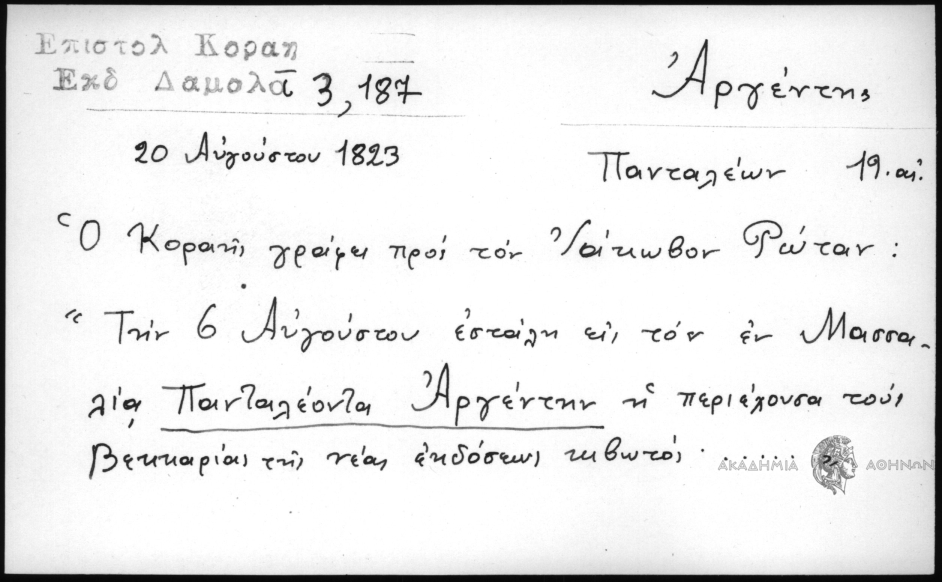 Επιστολ Κοραη
Εκδ Δαμολᾶ 3, 187
Ἀργέντης
20 Αὐγούστου 1823
Πανταλέων 19. αἰ.
Ὁ Κοραῆς γράφει πρός τόν Ἰάκωβον Ρώταν :
“ Τήν 6 Αὐγούστου ἐστάλη εἰς τόν ἐν Μασσα-
λίᾳ Πανταλέοντα Ἀργέντην ἡ περιέχουσα τούς
Βεκκαρίας τῆς νέας ἐκδόσεως κιβωτός . ...... „
ΑΚΑΔΗΜΙΑ ΑΘΗΝΩΝ